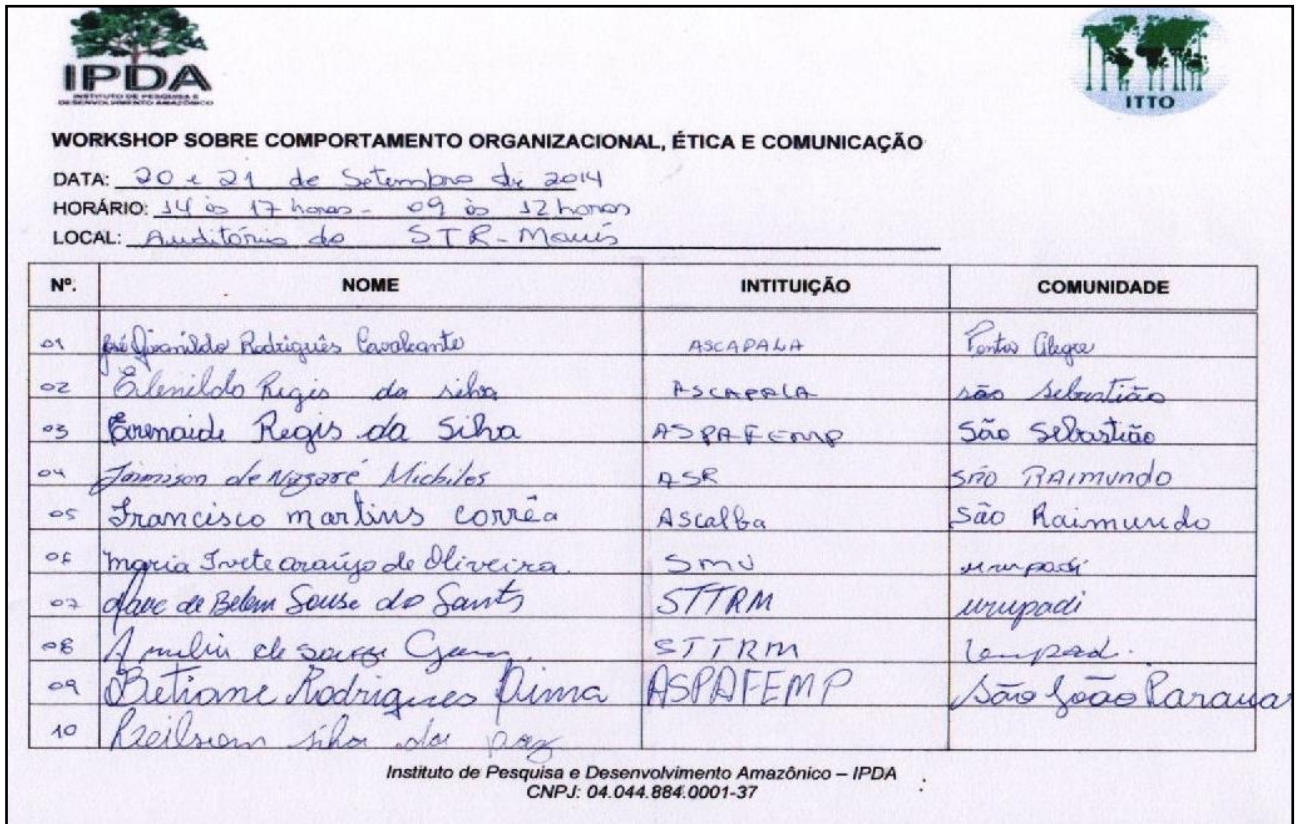 IPDA
INSTITUTO DE PESQUISA E
DESENVOLVIMENTO AMAZÔNICO
ITTO
WORKSHOP SOBRE COMPORTAMENTO ORGANIZACIONAL, ÉTICA E COMUNICAÇÃO
DATA: 20 e 21 de Setembro de 2014
HORÁRIO: 14 às 17 horas - 09 às 12 horas
LOCAL: Auditório do STR-Maués
Nº. NOME INTITUIÇÃO COMUNIDADE
01 José Rodrigues Cavalcante ASCAPALA Alegre
02 Elenildo Regis da silva ASCAPALA são Sebastião
03 Regis da Silva ASPAFEMP São Sebastião
04 de Nazaré Michiles ASR SÃO RAIMUNDO
05 Francisco martins corrêa Ascalba São Raimundo
06 maria Ivete araújo de Oliveira SMU urupadi
07 de Belem Sousa do Santos STTRM urupadi
08 de souza STTRM
09 Betiane Rodrigues ASPAFEMP São João Parana
10 silva da paz
Instituto de Pesquisa e Desenvolvimento Amazônico – IPDA
CNPJ: 04.044.884.0001-37